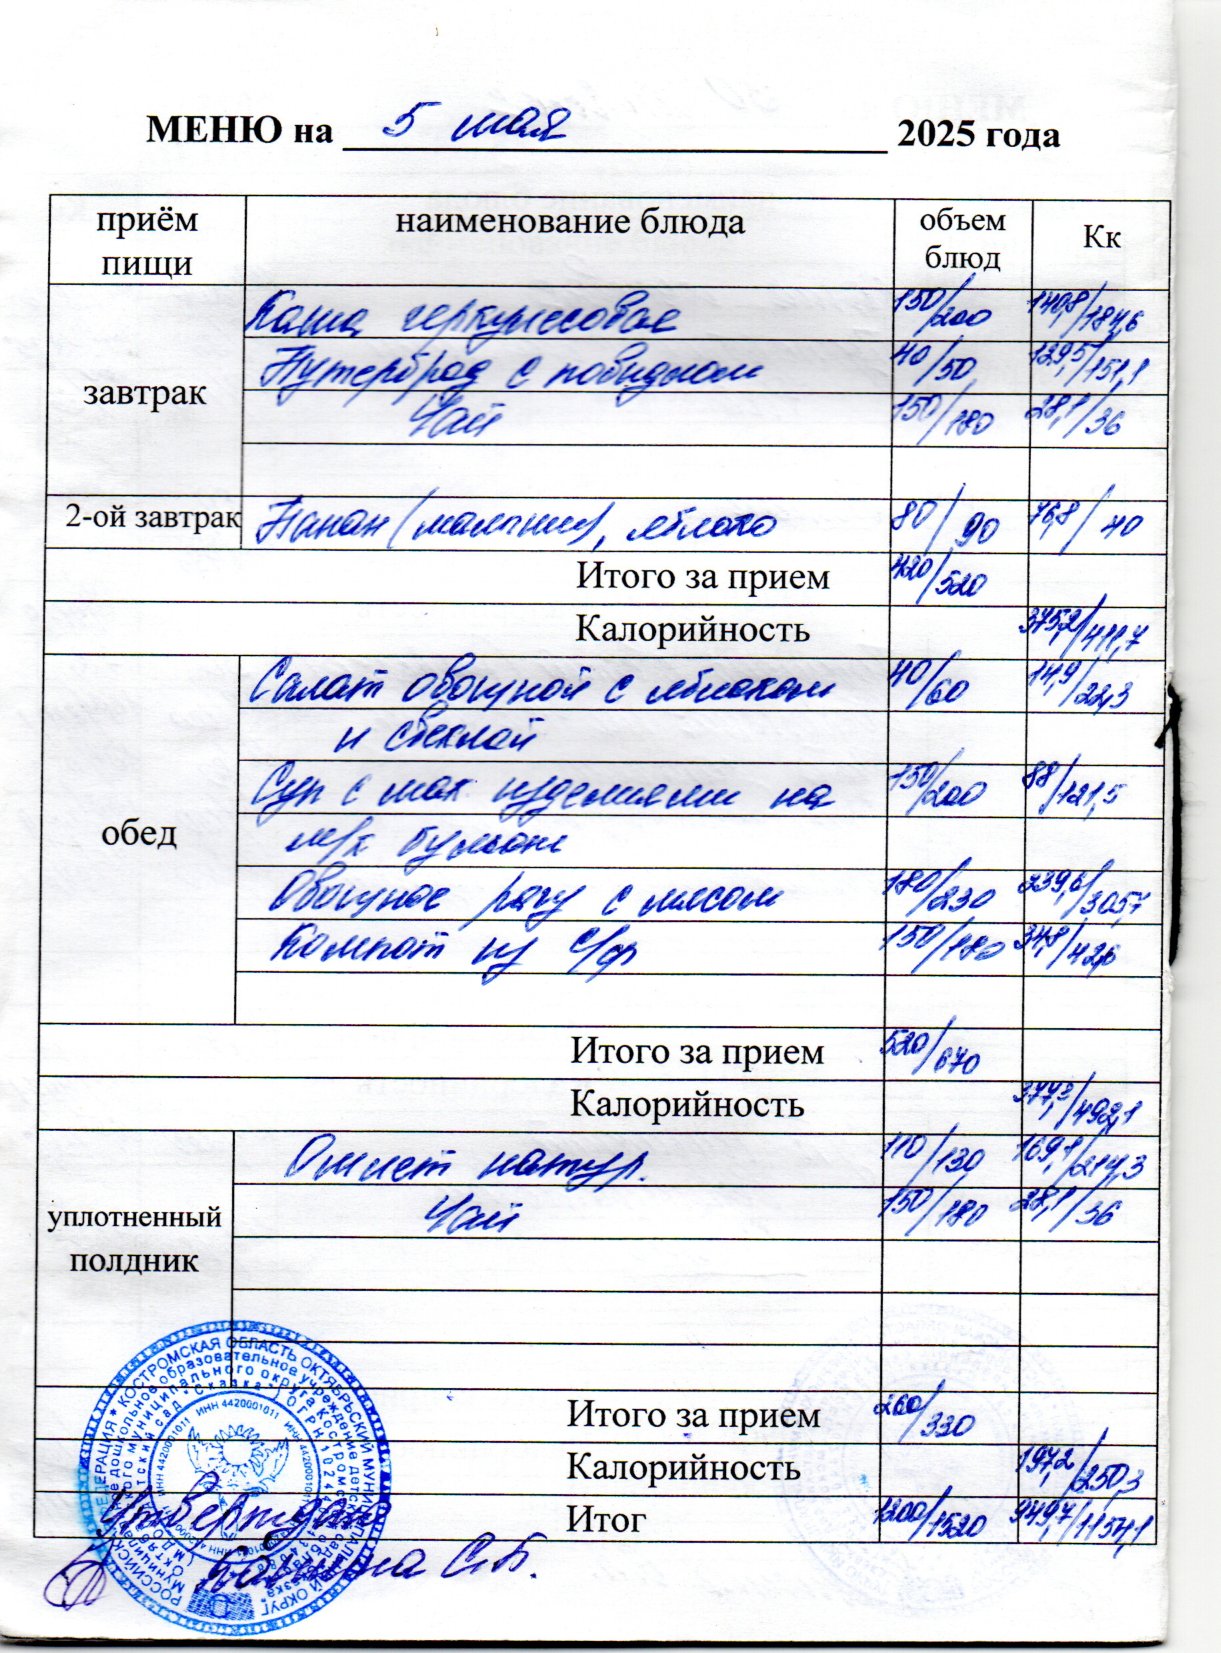 МЕНЮ на 5 мая 2025 года
приём пищи наименование блюда объем блюд Кк
завтрак
Каша геркулесовая 150/200 140,8/184,6
Бутерброд с повидлом 40/50 129,5/151,1
Чай 150/180 28,1/36
2-ой завтрак Банан (малыши), яблоко 80/90 76,8/40
Итого за прием 420/520
Калорийность 375,2/411,7
обед
Салат овощной с яблоком 40/60 14,9/22,3
и свеклой
Суп с мак. изделиями на 150/200 88/121,5
м/к бульоне
Овощное рагу с мясом 180/230 239,6/305,7
Компот из с/ф 150/180 34,8/42,6
Итого за прием 520/670
Калорийность 377,3/492,1
уплотненный полдник
Омлет натур. 110/130 169,1/214,3
Чай 150/180 28,1/36
Итого за прием 260/330
Калорийность 197,2/250,3
Итог 1200/1520 949,7/1154,1
Утверждаю
С.В.
КОСТРОМСКАЯ ОБЛАСТЬ ОКТЯБРЬСКИЙ МУНИЦИПАЛЬНЫЙ ОКРУГ
ИНН 4420001011